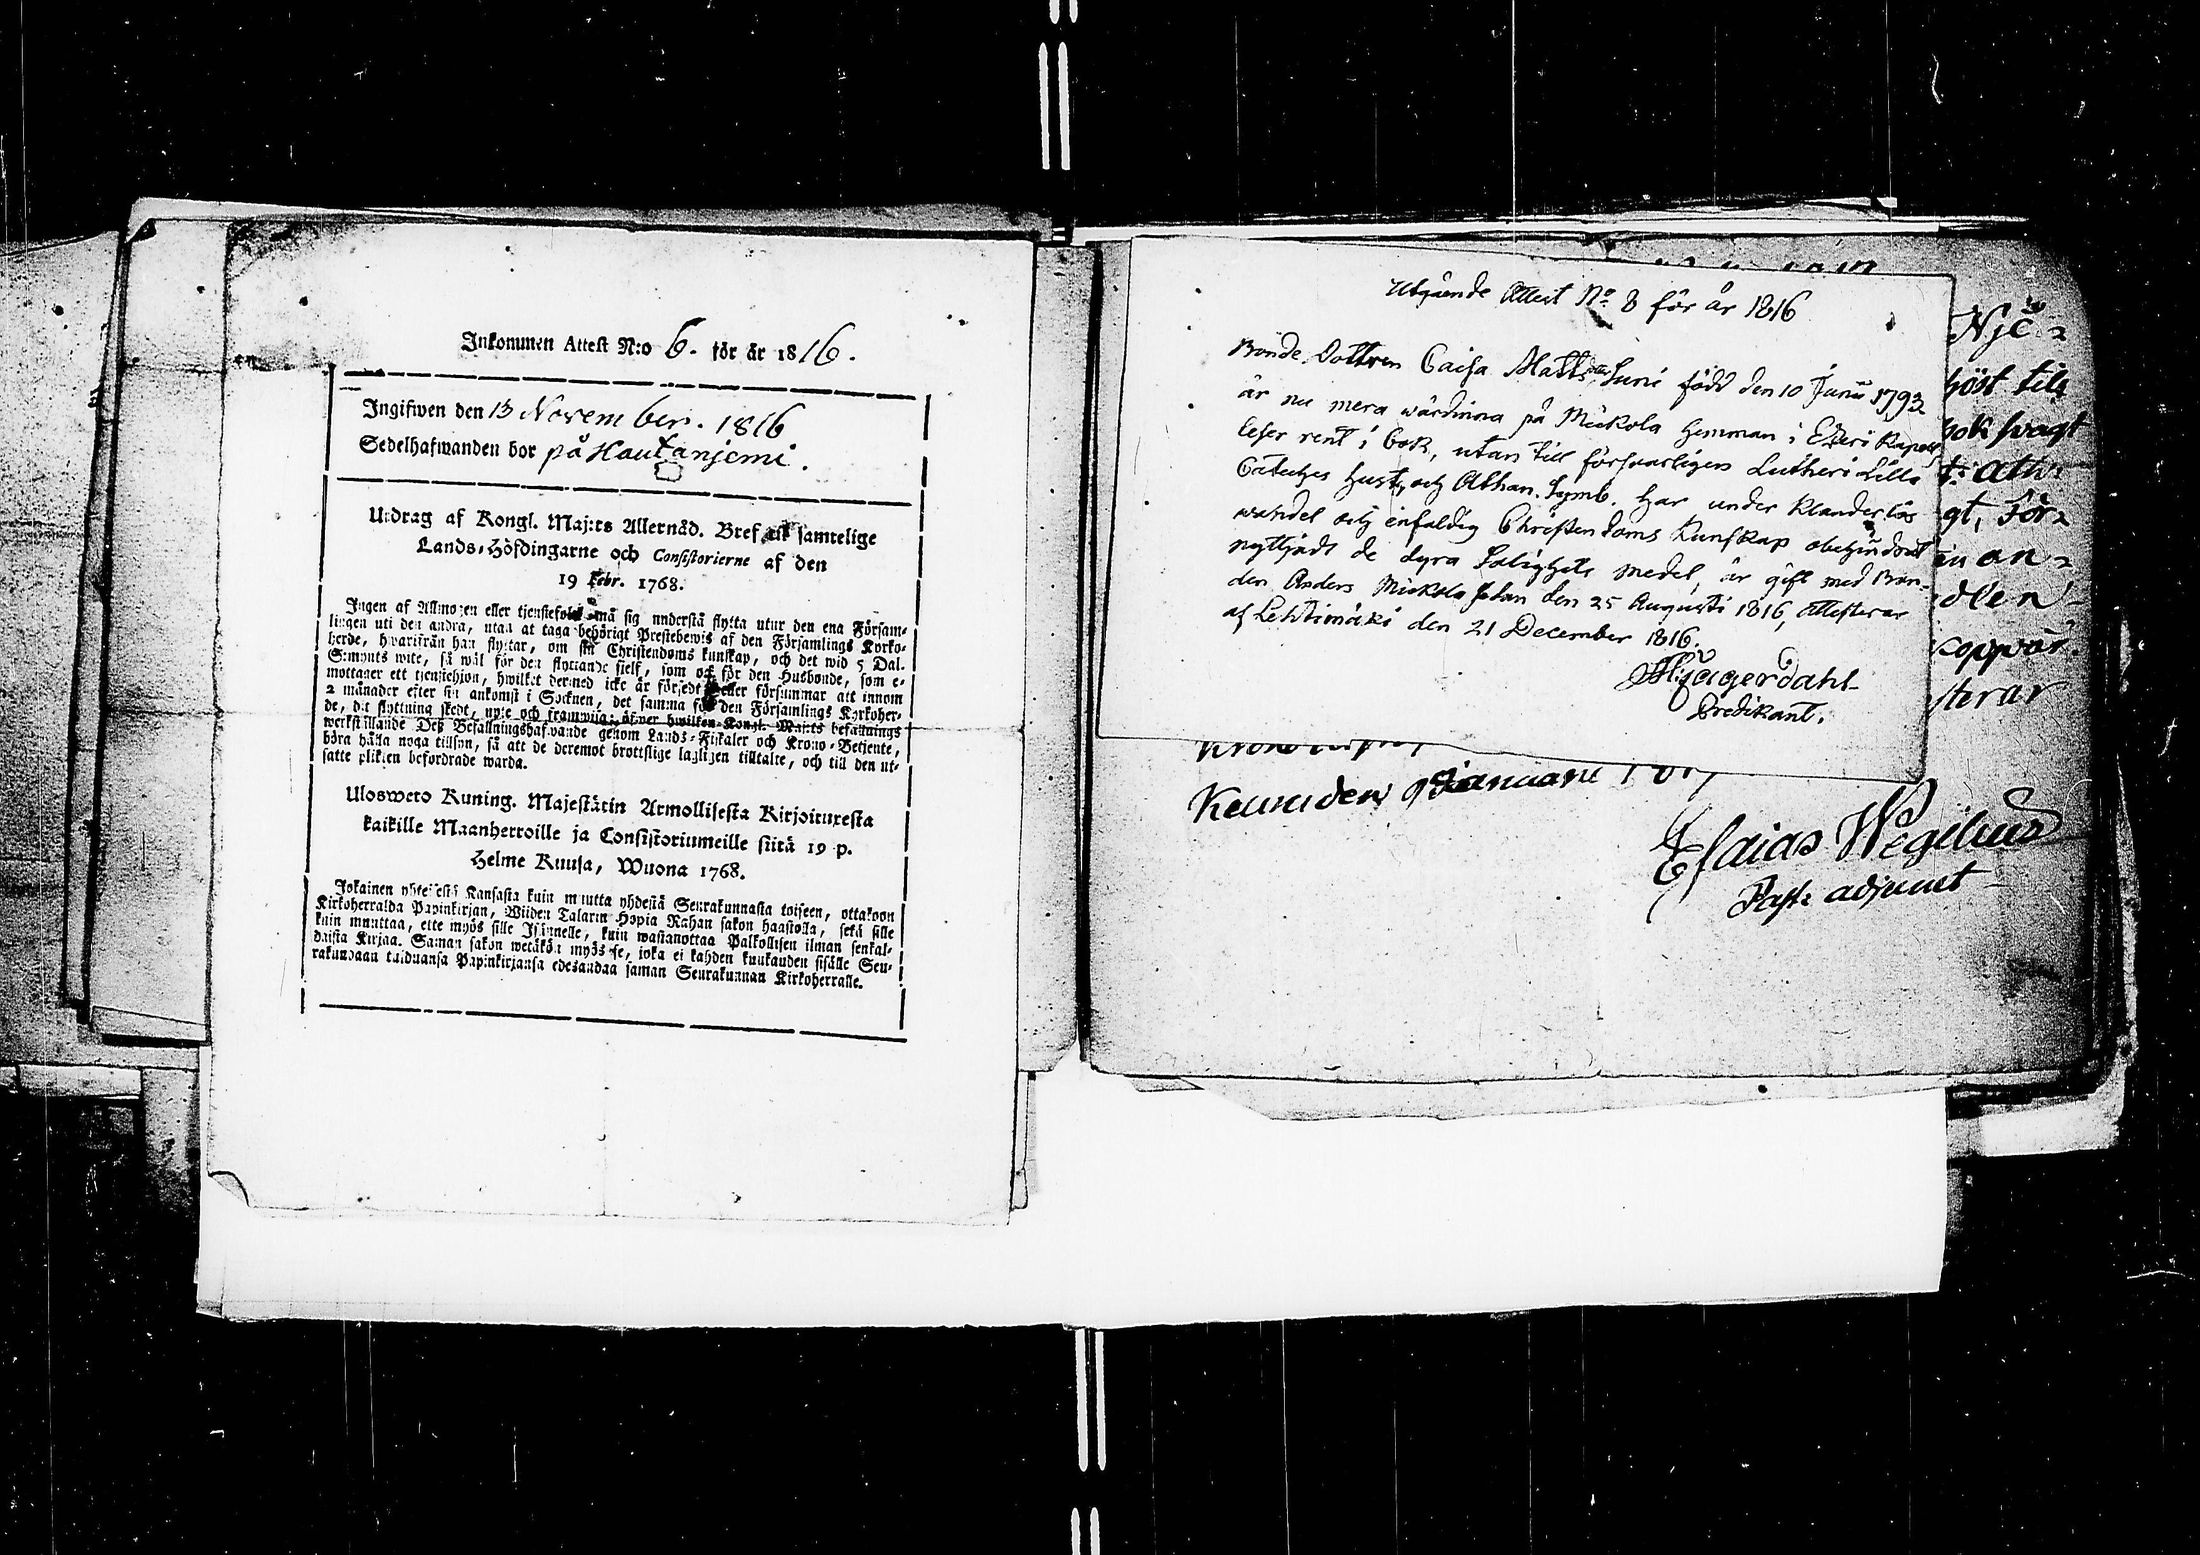 Inkommen Attest N:o 6. för år 1816.
Ingifwen den 13 November. 1816
Sedelhafwanden bor på Hautanjemi.
Utdrag af Kongl. Maj:ts Allernåd. Bref till samtelige
Lands-Höfdingarne och Consistorierne af den
19 Febr. 1768.
Ingen af Allmogen eller tjenstefolk må sig understå flytta utur den ena Försam-
lingen uti den andra, utan at taga behörigt Prestebewis af den Församlings Kyrko-
herde, hwarifrån han flyttar, om sin Christendoms kunskap, och det wid 5 Dal.
S:mynts wite, så wäl för den flyttande sjelf, som ock för den Husbonde, som e-
mottager ett tjenstehjon, hwilket dermed icke är försedt eller försummar att innom
2 månader efter sin ankomst i Socknen, det samma för den Församlings Kyrkoher-
de, dit flyttning skedt, upte och framwisa; öfwer hwilken Kongl. Maj:ts befallnings
werkställande Deß Befallningshafwande genom Lands-Fiskaler och Krono-Betjente,
böra hålla noga tillsyn, så att de deremot brottslige lagligen tilltalte, och till den ut-
satte plikten befordrade warda.
Uloswero Kuning. Majestätin Armollisesta Kirjoituxesta
kaikille Maanherroille ja Consistoriumeille siitä 19 p.
Helme Kuusa, Wuona 1768.
Jokainen yhteisestä Kansasta kuin muutta yhdestä Seurakunnasta toiseen, ottakoon
Kirkoherralda Papinkirjan, Wiiden Talarin Hopia Rahan sakon haastolla, sekä sille
kuin muuttaa, ette myös sille Isännelle, kuin wastanottaa Palkollisen ilman senkal-
daista Kirjaa. Saman sakon wetäkön myös se, joka ei kahden kuukauden sisälle Seu-
rakundaan tulduansa Papinkirjansa edesandaa saman Seurakunnan Kirkoherralle.
Utgående Attest No 8 för år 1816
Bonde Dottren Caisa Mattsdotter Suni född den 10 Junii 1793
är nu mera wärdinna på Mickola hemman i Etzeri Kapell
leser rent i bok, utan till förswarligen Lutheri Lilla
Cateches Hust. och Athan. Symb. har under klanderlös
wandel och enfaldig Christendoms Kunskap obehindrat
nyttjadt de dyra Salighets medel, är gift med Bon-
den Anders Mickola sedan den 25 Augusti 1816, Attesterar
af Lehtimäki den 21 December 1816.
Hjagerdahl
Predikant.
Nje
höst till
bok swagt
gt, För
an
dlen
koppor
sterar
Keuru den 9 Januarii 1817
Esaias Wegelius
Past. adjunct